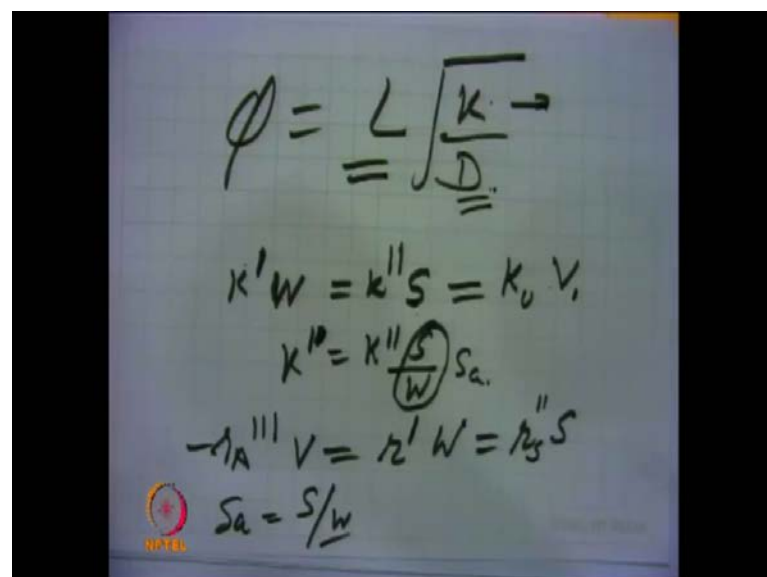 φ = L √(K/D)
K'W = K''S = Kᵥ V,
K' = K'' S/W Sa.
-r_A''' V = r' W = r_s'' S
Sa = S/W
NPTEL